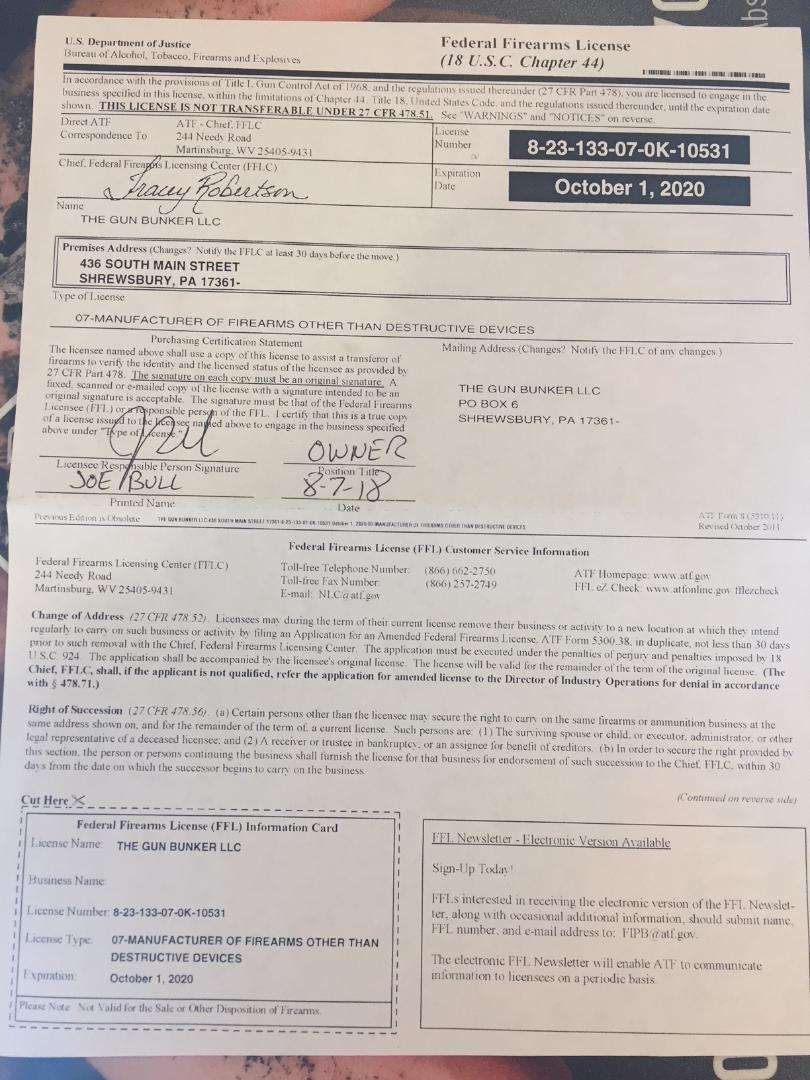 U.S. Department of Justice
Bureau of Alcohol, Tobacco, Firearms and Explosives
Federal Firearms License
(18 U.S.C. Chapter 44)
In accordance with the provisions of Title I, Gun Control Act of 1968, and the regulations issued thereunder (27 CFR Part 478), you are licensed to engage in the
business specified in this license, within the limitations of Chapter 44, Title 18, United States Code, and the regulations issued thereunder, until the expiration date
shown. THIS LICENSE IS NOT TRANSFERABLE UNDER 27 CFR 478.51. See "WARNINGS" and "NOTICES" on reverse.
Direct ATF
Correspondence To
ATF - Chief, FFLC
244 Needy Road
Martinsburg, WV 25405-9431
License
Number
8-23-133-07-0K-10531
Chief, Federal Firearms Licensing Center (FFLC)
Tracey Robertson
Expiration
Date
October 1, 2020
Name
THE GUN BUNKER LLC
Premises Address (Changes? Notify the FFLC at least 30 days before the move.)
436 SOUTH MAIN STREET
SHREWSBURY, PA 17361-
Type of License
07-MANUFACTURER OF FIREARMS OTHER THAN DESTRUCTIVE DEVICES
Purchasing Certification Statement
The licensee named above shall use a copy of this license to assist a transferor of
firearms to verify the identity and the licensed status of the licensee as provided by
27 CFR Part 478. The signature on each copy must be an original signature. A
faxed, scanned or e-mailed copy of the license with a signature intended to be an
original signature is acceptable. The signature must be that of the Federal Firearms
Licensee (FFL) or a responsible person of the FFL. I certify that this is a true copy
of a license issued to the licensee named above to engage in the business specified
above under "Type of License."
Mailing Address (Changes? Notify the FFLC of any changes.)
THE GUN BUNKER LLC
PO BOX 6
SHREWSBURY, PA 17361-
OWNER
Licensee Responsible Person Signature
Position Title
JOE BULL
8-7-18
Printed Name
Date
Previous Edition is Obsolete
THE GUN BUNKER LLC:436 SOUTH MAIN STREET 17361:8-23-133-07-0K-10531:October 1, 2020:07-MANUFACTURER OF FIREARMS OTHER THAN DESTRUCTIVE DEVICES
ATF Form 8 (5310.11)
Revised October 2011
Federal Firearms License (FFL) Customer Service Information
Federal Firearms Licensing Center (FFLC)
244 Needy Road
Martinsburg, WV 25405-9431
Toll-free Telephone Number: (866) 662-2750
Toll-free Fax Number: (866) 257-2749
E-mail: NLC@atf.gov
ATF Homepage: www.atf.gov
FFL eZ Check: www.atfonline.gov/fflezcheck
Change of Address (27 CFR 478.52). Licensees may during the term of their current license remove their business or activity to a new location at which they intend
regularly to carry on such business or activity by filing an Application for an Amended Federal Firearms License, ATF Form 5300.38, in duplicate, not less than 30 days
prior to such removal with the Chief, Federal Firearms Licensing Center. The application must be executed under the penalties of perjury and penalties imposed by 18
U.S.C. 924. The application shall be accompanied by the licensee's original license. The license will be valid for the remainder of the term of the original license. (The
Chief, FFLC, shall, if the applicant is not qualified, refer the application for amended license to the Director of Industry Operations for denial in accordance
with § 478.71.)
Right of Succession (27 CFR 478.56). (a) Certain persons other than the licensee may secure the right to carry on the same firearms or ammunition business at the
same address shown on, and for the remainder of the term of, a current license. Such persons are: (1) The surviving spouse or child, or executor, administrator, or other
legal representative of a deceased licensee; and (2) A receiver or trustee in bankruptcy, or an assignee for benefit of creditors. (b) In order to secure the right provided by
this section, the person or persons continuing the business shall furnish the license for that business for endorsement of such succession to the Chief, FFLC, within 30
days from the date on which the successor begins to carry on the business.
(Continued on reverse side)
Cut Here
Federal Firearms License (FFL) Information Card
License Name: THE GUN BUNKER LLC
Business Name:
License Number: 8-23-133-07-0K-10531
License Type: 07-MANUFACTURER OF FIREARMS OTHER THAN
DESTRUCTIVE DEVICES
Expiration: October 1, 2020
Please Note: Not Valid for the Sale or Other Disposition of Firearms.
FFL Newsletter - Electronic Version Available
Sign-Up Today!
FFLs interested in receiving the electronic version of the FFL Newslet-
ter, along with occasional additional information, should submit name,
FFL number, and e-mail address to: FIPB@atf.gov.
The electronic FFL Newsletter will enable ATF to communicate
information to licensees on a periodic basis.